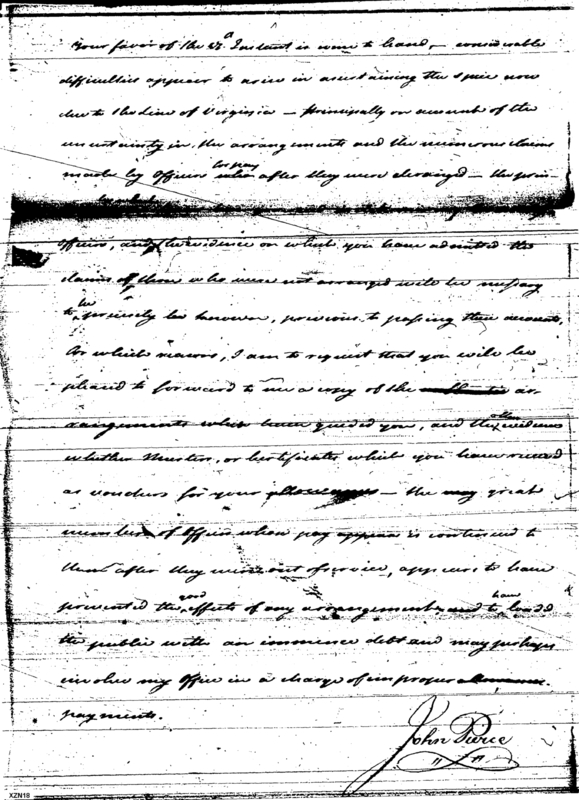 Your favor of the 4th Instant is come to hand, — considerable
difficulties appear to arise in ascertaining the sum now
due to the Line of Virginia — principally on account of the
uncertainty in the arrangements and the numerous claims
made by Officers for pay after they were deranged — the prin-
Officers, and the evidence on which you have admitted the
claims of those who were not arranged will be necessary
to be precisely known, previous to passing their accounts,
for which reasons, I am to request that you will be
pleased to forward to me a copy of the ar-
rangements which have guided you, and the other evidences
whether Musters, or Certificates which you have received
as vouchers for your — the great
number of Officers whose pay is continued to
them after they were out of service, appears to have
prevented the good effects of any arrangements to have loaded
the public with an immense debt and may perhaps
involve my Office in a charge of improper
payments.
John Pierce
XZN18